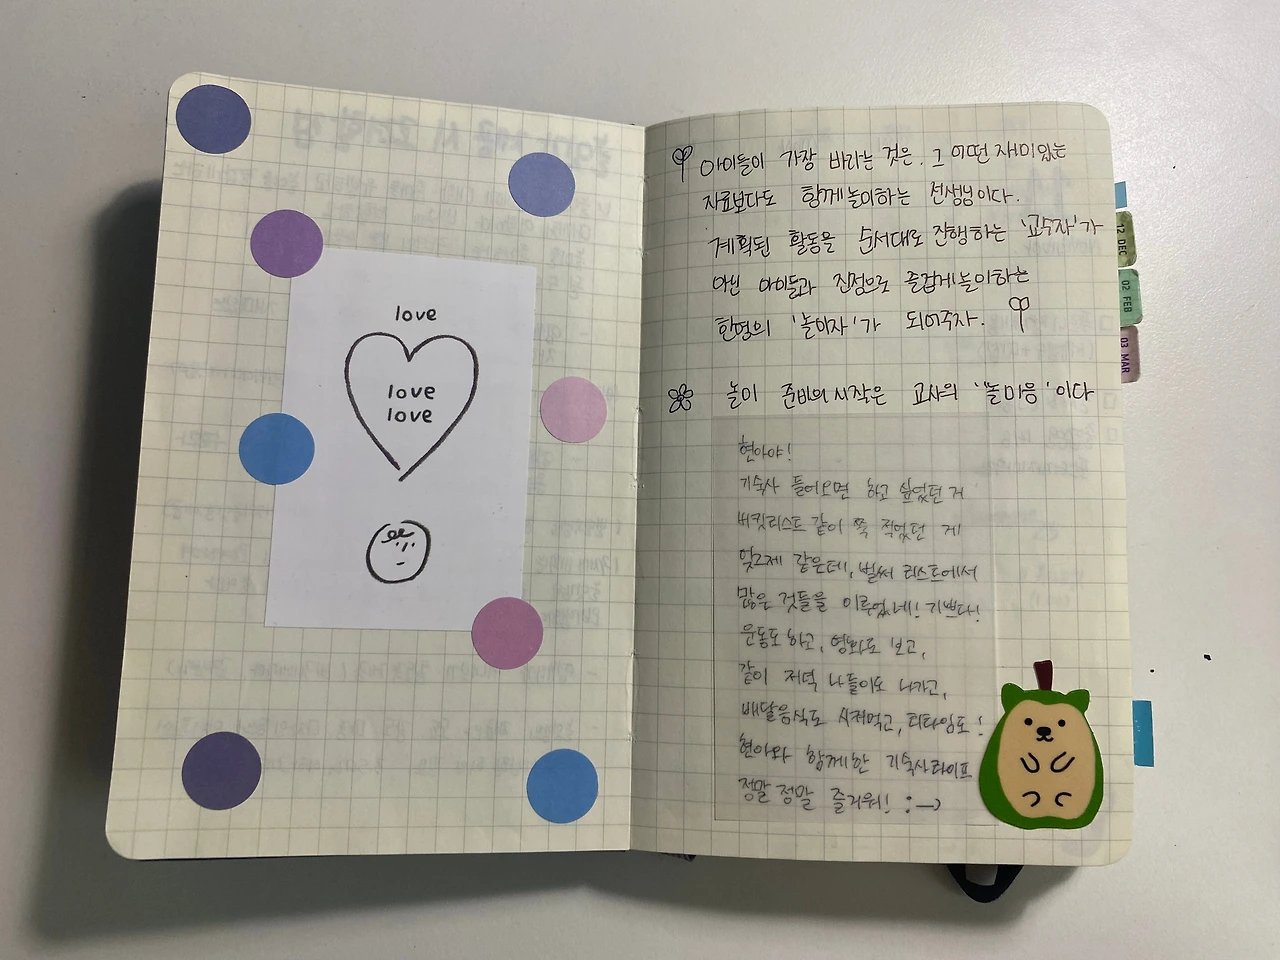 love
love
love
아이들이 가장 바라는 것은. 그 어떤 재미있는
자료보다도 함께 놀이하는 선생님이다.
계획된 활동을 순서대로 진행하는 '교수자'가
아닌 아이들과 진정으로 즐겁게 놀이하는
한명의 '놀이자'가 되어주자.
놀이 준비의 시작은 교사의 '놀 마음'이다
현아야!
기숙사 들어오면 하고 싶었던 거
버킷리스트 같이 쭉 적었던 게
엊그제 같은데, 벌써 리스트에서
많은 것들을 이루었네! 기쁘다!
운동도 하고, 영화도 보고,
같이 저녁 나들이도 나가고,
배달음식도 시켜먹고, 티타임도!
현아와 함께한 기숙사라이프
정말 정말 즐거워! :—)
12 DEC
02 FEB
03 MAR